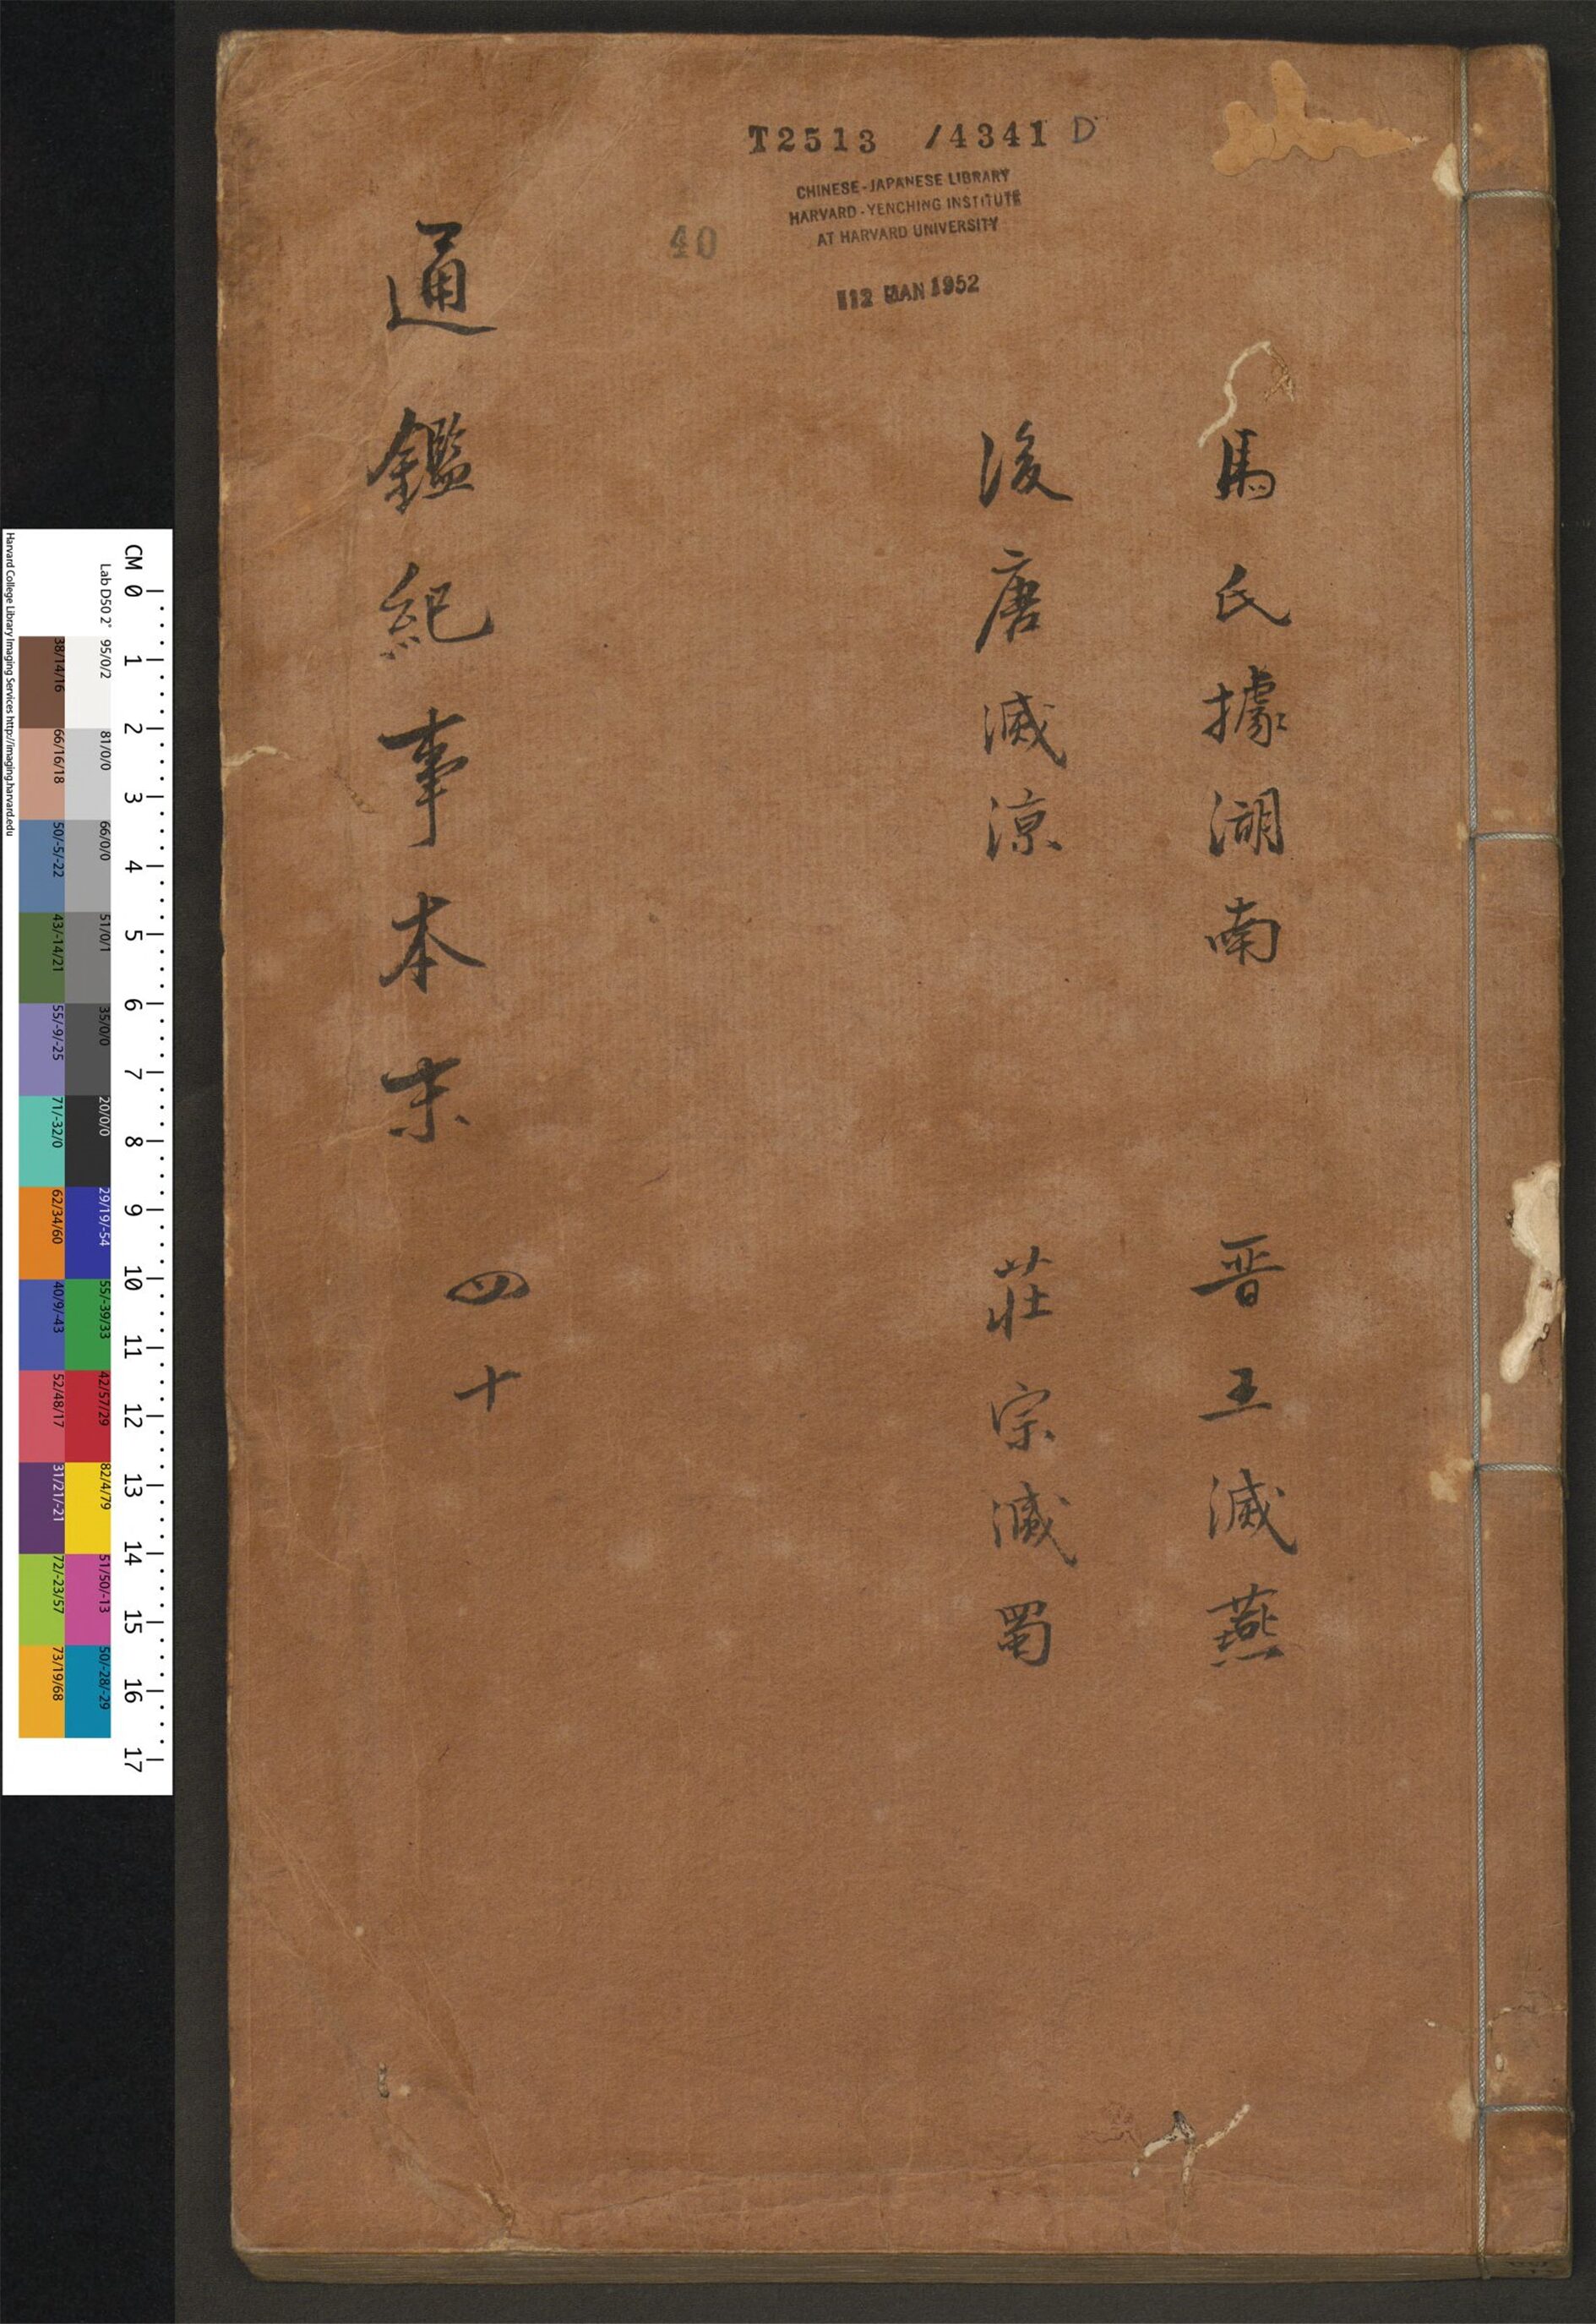 T2513 /4341 D
CHINESE-JAPANESE LIBRARY
HARVARD-YENCHING INSTITUTE
AT HARVARD UNIVERSITY
12 JAN 1952
40
馬氏據湖南 晋王滅燕
後唐滅涼 莊宗滅蜀
通鑑紀事本末 四十
CM 0 1 2 3 4 5 6 7 8 9 10 11 12 13 14 15 16 17
Lab D50 2° 95/0/2 81/0/0 66/0/0 51/0/1 35/0/0 20/0/0 29/19/-54 55/-39/33 42/57/29 82/4/79 51/50/-13 50/-28/-29
38/14/16 66/16/18 50/-5/-22 43/-14/21 55/-9/-25 71/-32/0 62/34/60 40/9/-43 52/48/17 31/21/-21 72/-23/57 73/19/68
Harvard College Library Imaging Services http://imaging.harvard.edu